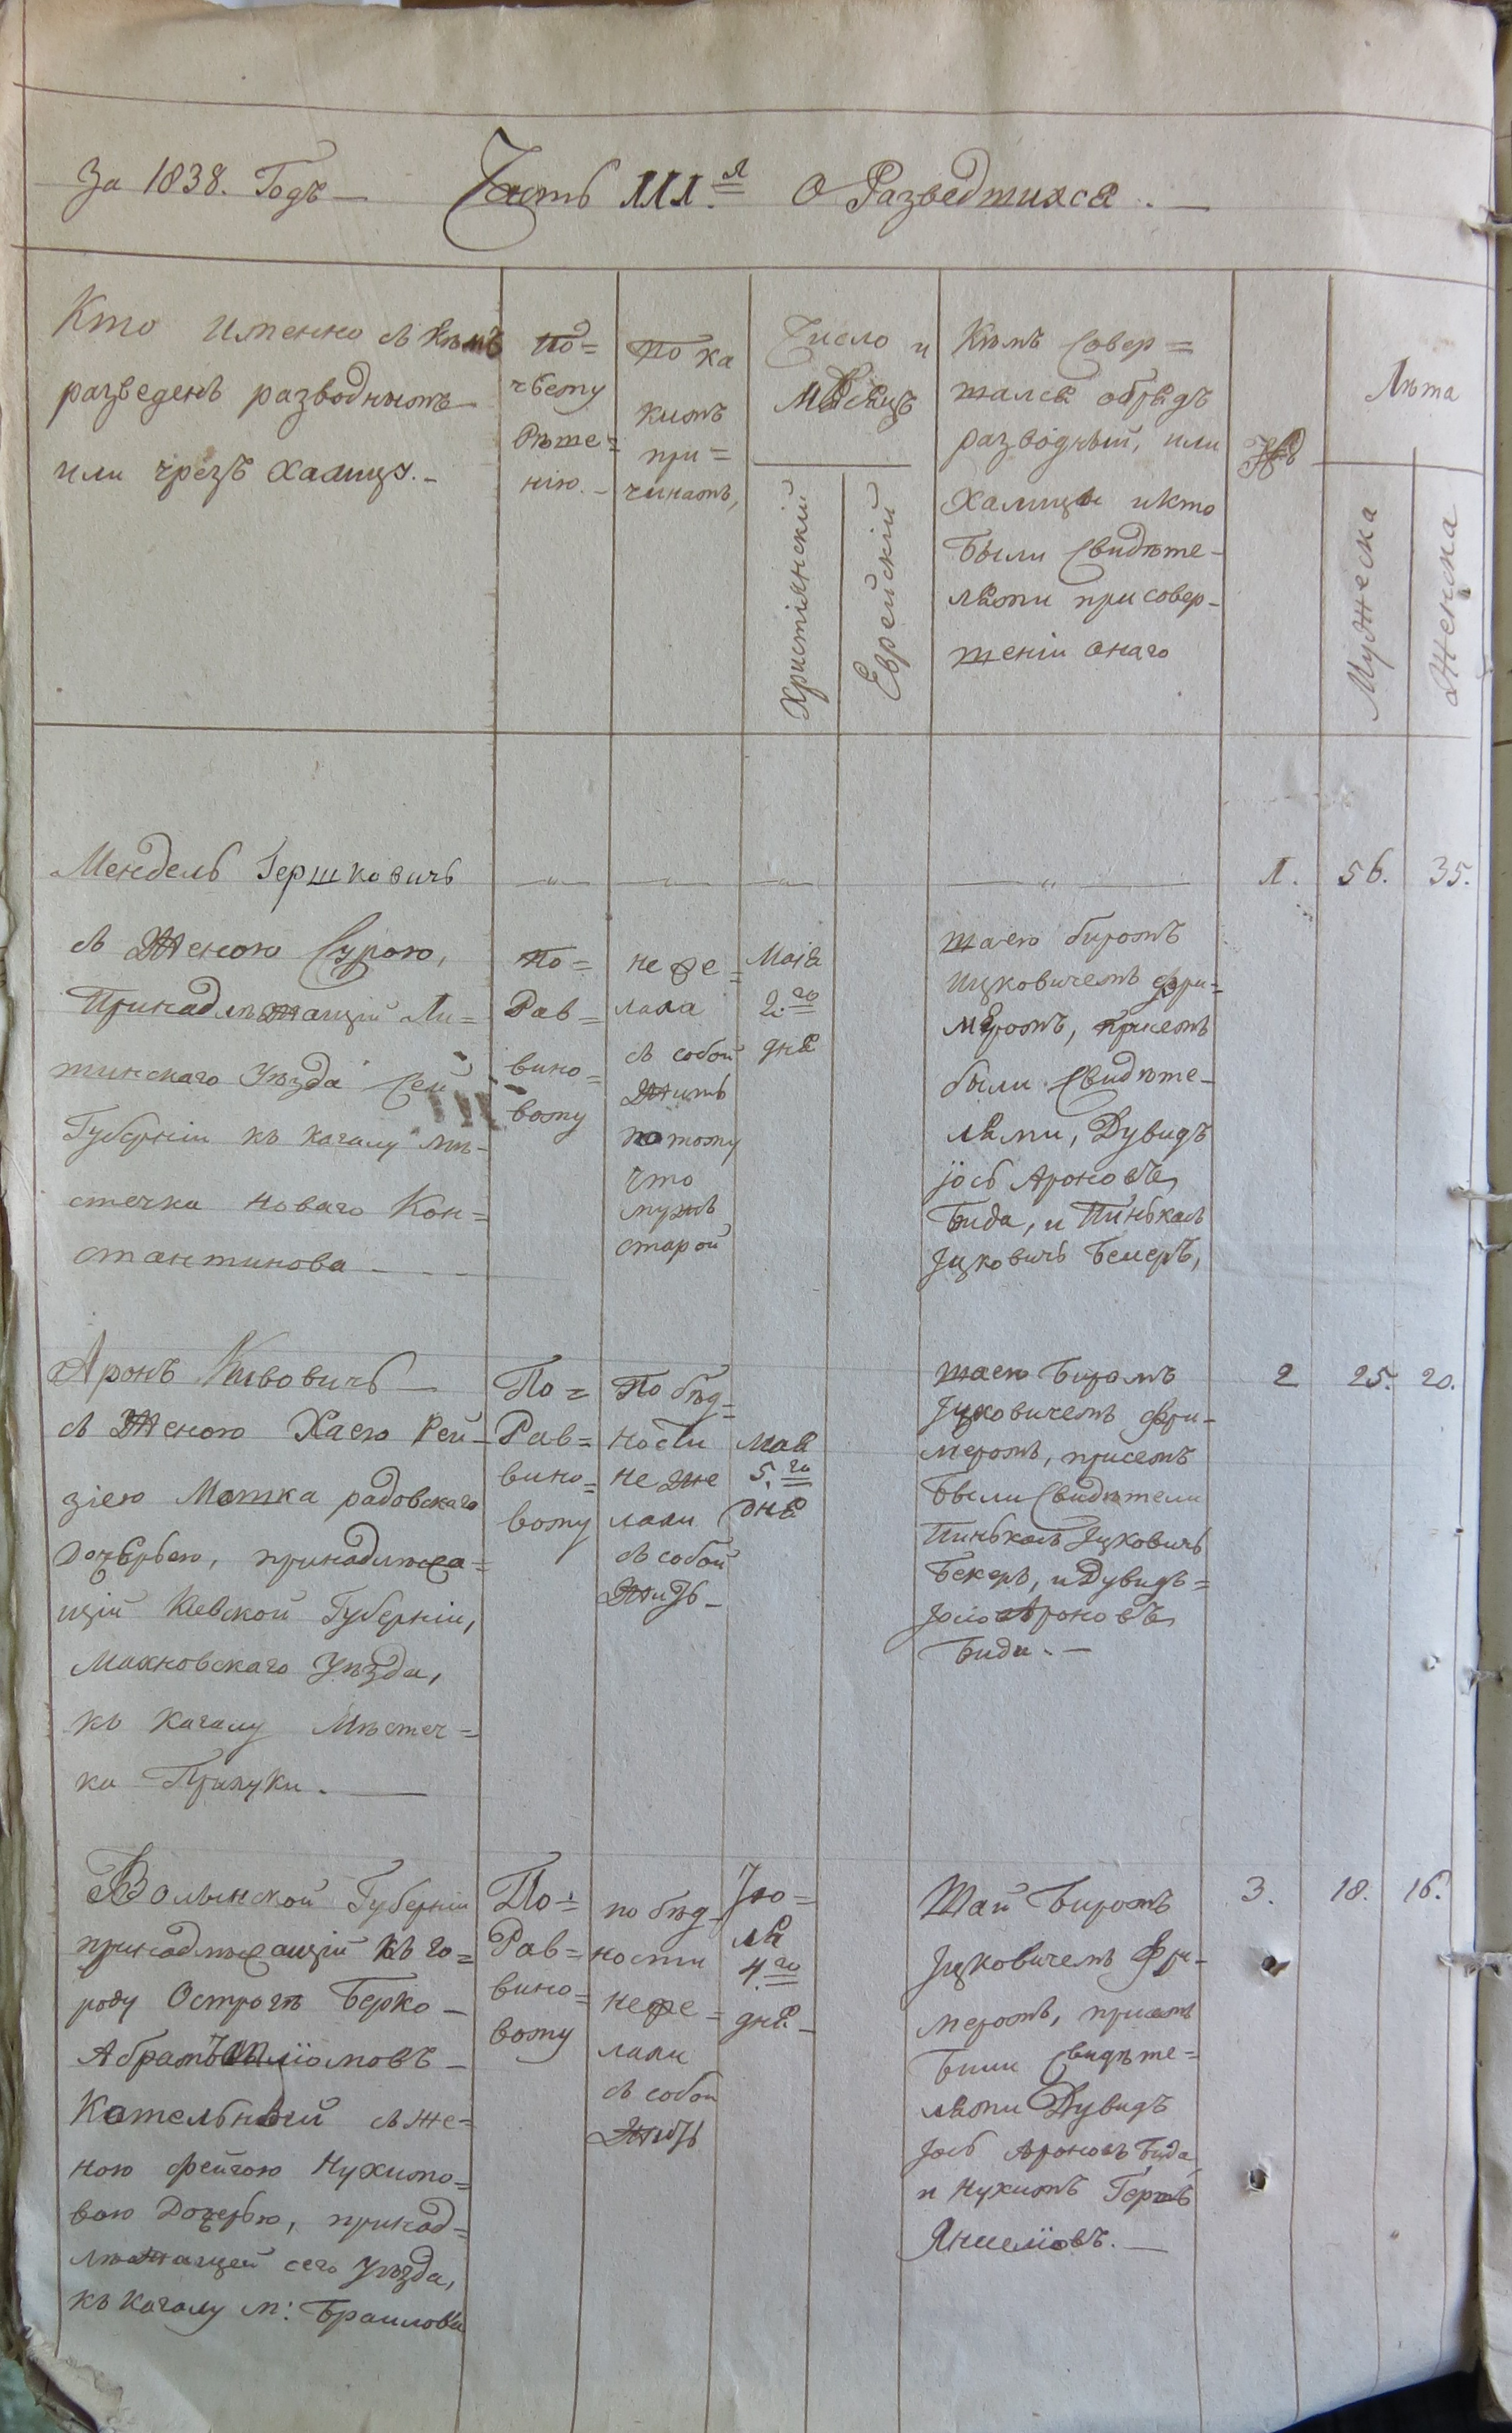 За 1838. Годъ — Часть III.я О Разведшихся. —
Кто именно съ кемъ
разведенъ разводнымъ
или чрезъ халицу. -
По=
чьему
Реше=
нію. -
По ка
кимъ
при=
чинамъ,
Число и
Месяцъ
Христіянскій
Еврейскій
Кемъ совер=
шался обрядъ
разводный, или
Халицы и кто
были свидете-
лями при совер-
шеніи онаго
Лета
Мужеска
Женска
Мендель Гершковичъ
съ Женою Сурою,
Принадлежащій Ли=
тинскаго Уезда Сей
Губерніи къ кагалу ме-
стечка Новаго Кон=
стантинова - - -
По=
Рав=
вино=
вому
не же=
лала
съ собой
Жить
потому
что
мужъ
старой
Маія
2.го
дня
шаею биромъ
ицковичемъ фри=
меромъ, присемъ
были свидете-
лями, Дувидъ
іось Ароновъ
Бида, и Пинькасъ
Іцковичъ Бекеръ,
1. 56. 35.
Аронъ Кивовичъ —
съ Женою Хаею Рей-
зіею Мошка радовскаго
Дочерью, принадлежа=
щій Кевской Губерніи,
Махновскаго Уезда,
къ Кагалу Местеч=
ка Прилуки. —
По=
Рав=
вино=
вому
По бед=
ности
не же
лали
съ собой
Жить -
Мая
5.го
дня
шаею Биромъ
Іцковичемъ Фри-
меромъ, присемъ
Были Свидетели
Пинькасъ Іцковичъ
Бекеръ, и Дувидъ=
Іось Ароновъ
Бида. —
2 25. 20.
Волынской Губерніи
принадлежащій къ го=
роду Острогъ Берко -
Котельный съ же=
ною Фейгою Нухимо=
вою Дочерью, принад=
лежащей сего Уезда,
къ Кагалу м: Браилова
По=
Рав=
вино=
вому
по бед-
ности
не же=
лали
съ собой
Жить
Ію=
ля
4.го
дня -
Шаи Биромъ
Іцковичемъ Фри-
меромъ, присемъ
Были Свидете=
лями Дувидъ
Іось Ароновъ Бида,
и Нухимъ Гершъ
3. 18. 16.